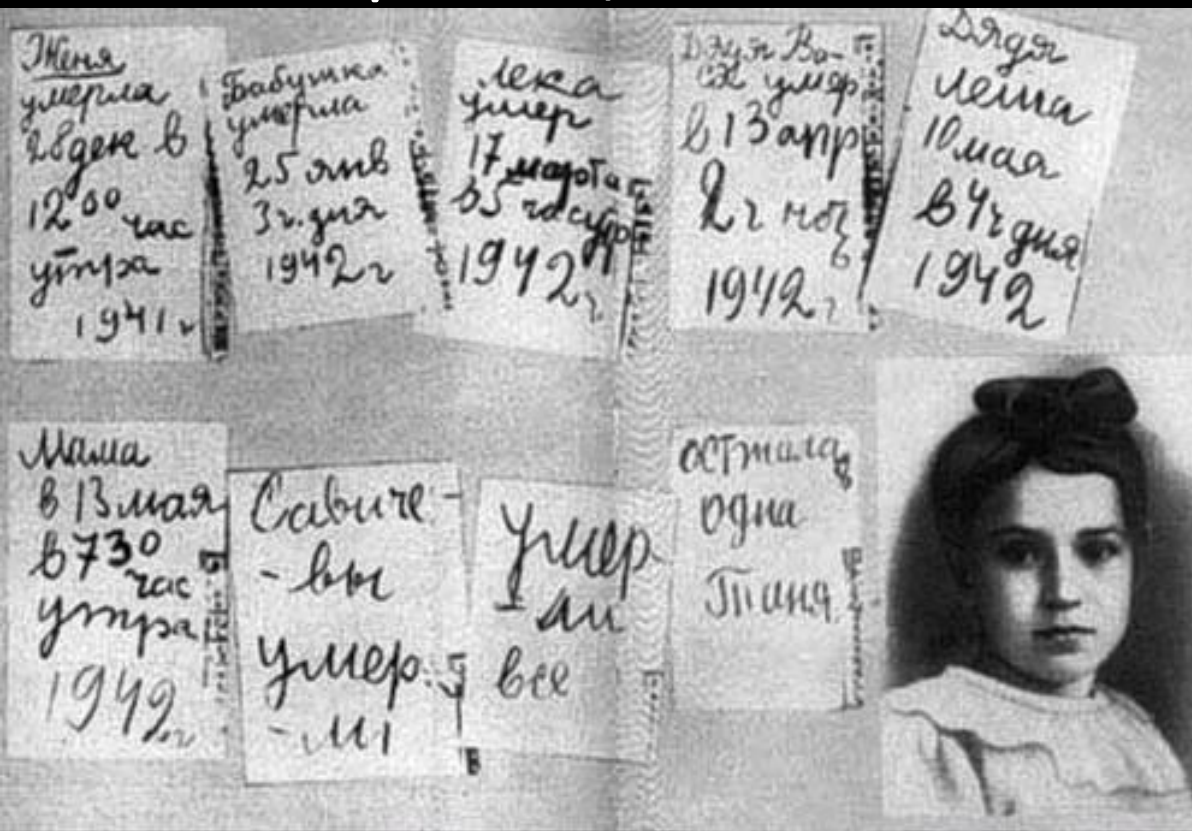 Женя
умерла
28 дек в
12 00 час
утра
1941 г
Бабушка
умерла
25 янв
3 ч. дня
1942 г
Лека
умер
17 марта
в 5 час утр
1942 г.
Дядя Ва-
ся умер
в 13 апр
2 ч ночь
1942 г
Дядя
Леша
10 мая
в 4 ч дня
1942
Мама
в 13 мая
в 7 30
час
утра
1942 г
Савиче-
- вы
умер
- ли
Умер
- ли
все
осталась
одна
Таня